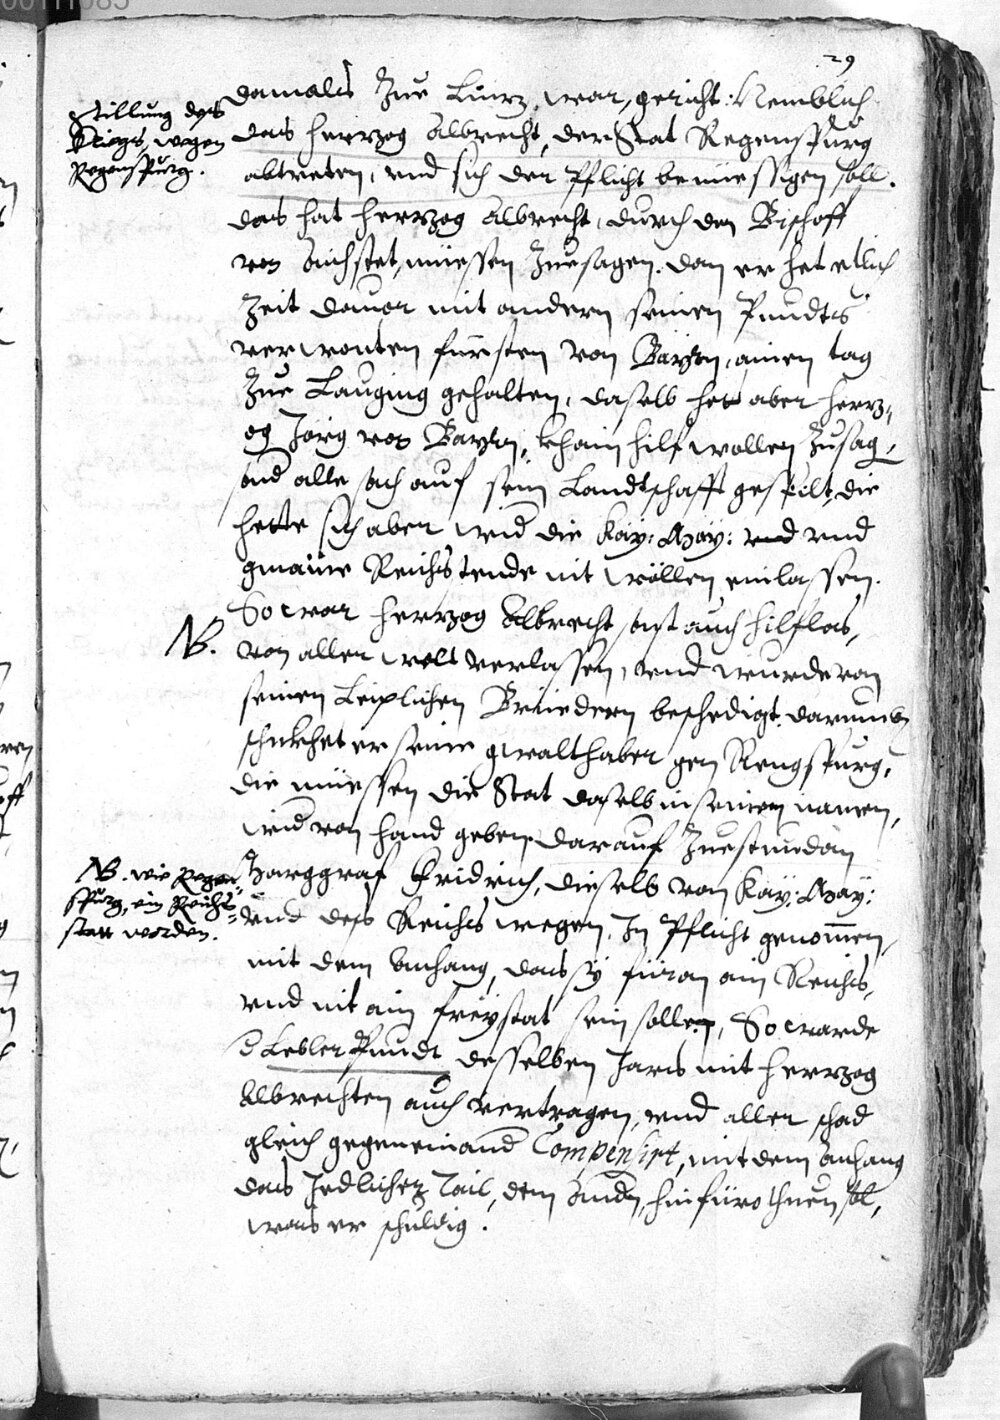 29
damals Zue Lintz war, gericht: Nemblich
Stillung des
Kriegs, wegen
Regenspurg.
das Herrzog Albrecht, der Stat Regenspurg
abtreten, vnd sich der Pflicht bemiessigen soll.
das hat Herrzog Albrecht, durch den Bischoff
von Aichstet, müessen Zuesagen. dan er het etlich
Zeit dauor mit andern seinen Pundts
verwonten fürsten von Bayrn, ainen tag
Zue Lauging gehalten, daselb het aber Herrz-
og Jörg von Bayrn, khain hilf wollen Zusag,
sond alle sach auf sein Landtschafft gespilt, die
hette sich aber wid die Kay: May: vnd vnd
gmaine Reichstende nit wöllen einlassen.
So war Herrzog Albrecht sust auch hilflos,
NB.
von aller welt verlassen, vnd wurde von
seinen Leiplichen Brüedern beschedigt. darumb
schikhet er seine gwalthaber gen Rengspurg,
die müessen die Stat daselb in seinem namen,
wid von hand geben. darauf Zuestundan
NB. wie Regen-
spurg, ein Reichs-
statt worden.
Marggraf Fridrich, dieselb von Kay: May:
vnd des Reichs wegen, In Pflicht genommen,
mit dem Anhang, das sy füran ain Reichs,
vnd nit ain freystat sein sollen, So warde
d Lebler Pundt desselben Jars mit Herrzog
Albrechten auch vertragen, vnd aller schad
gleich gegeneinand Compensirt, mit dem Anhang
das Jedlicher Tail, dem Andn, hinfüro thuen sol,
was er schuldig.